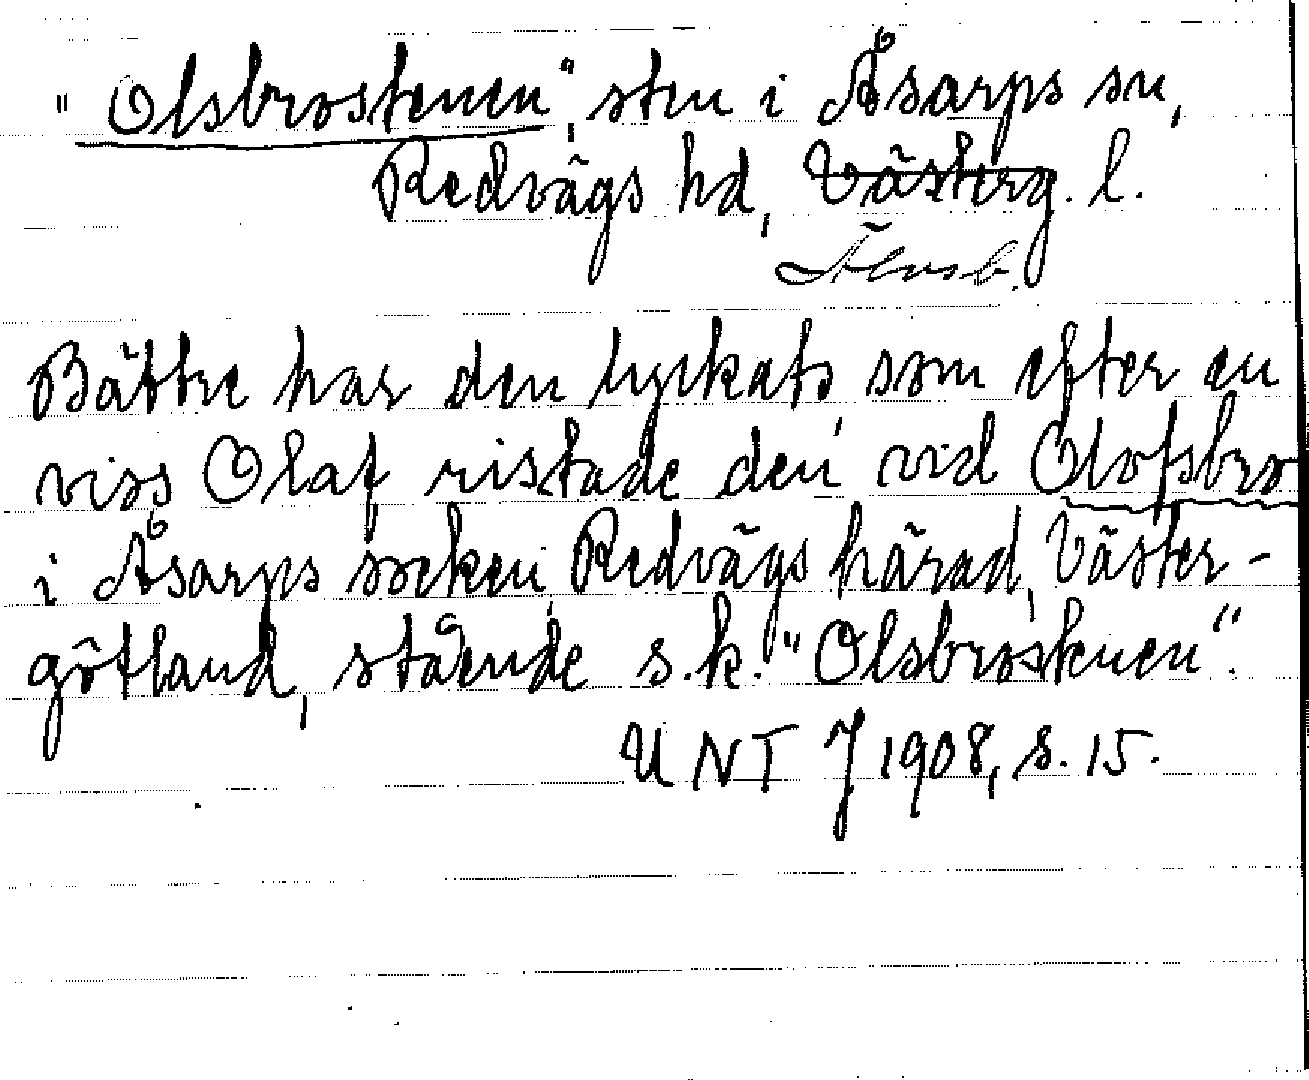 "Olsbrostenen", sten i Åsarps sn,
Redvägs hd, Västerg. l.
Älvsb.
Bättre har den lyckats som efter en
viss Olaf ristade den vid Olofsbro
i Åsarps socken, Redvägs härad, Väster-
götland, stående s.k. "Olsbrostenen".
UNT J 1908, s. 15.